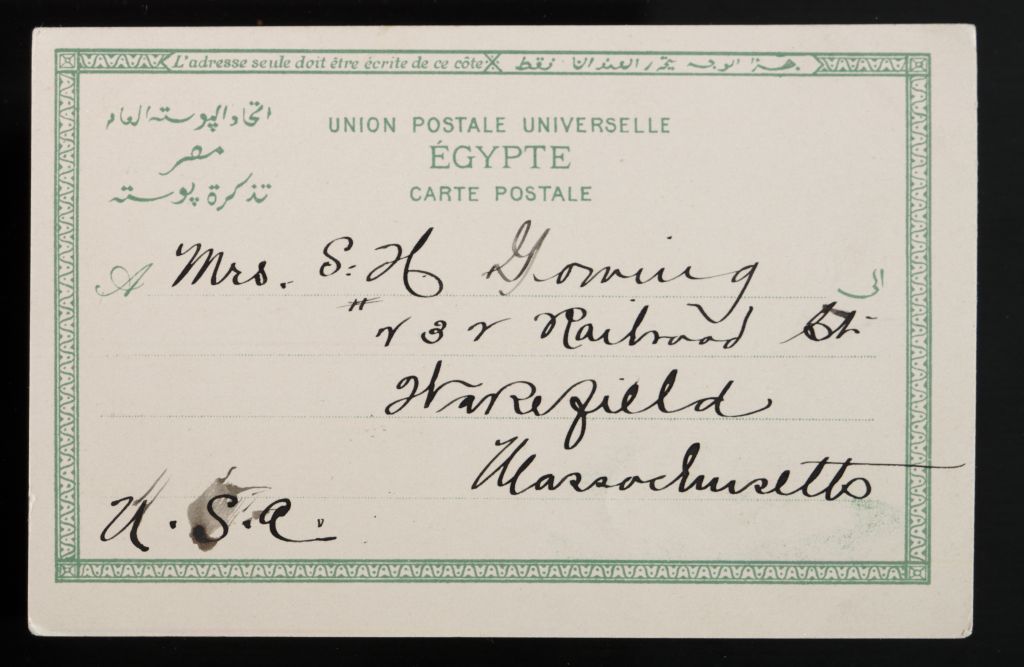 L'adresse seule doit être écrite de ce côté
هذا الوجه يحرر العنوان فقط
اتحاد الپوسته العام
مصر
تذكرة پوسته
UNION POSTALE UNIVERSELLE
ÉGYPTE
CARTE POSTALE
A Mrs. S. H Gowing الى
Railroad St.
Wakefield
Massachusetts
U. S. A.